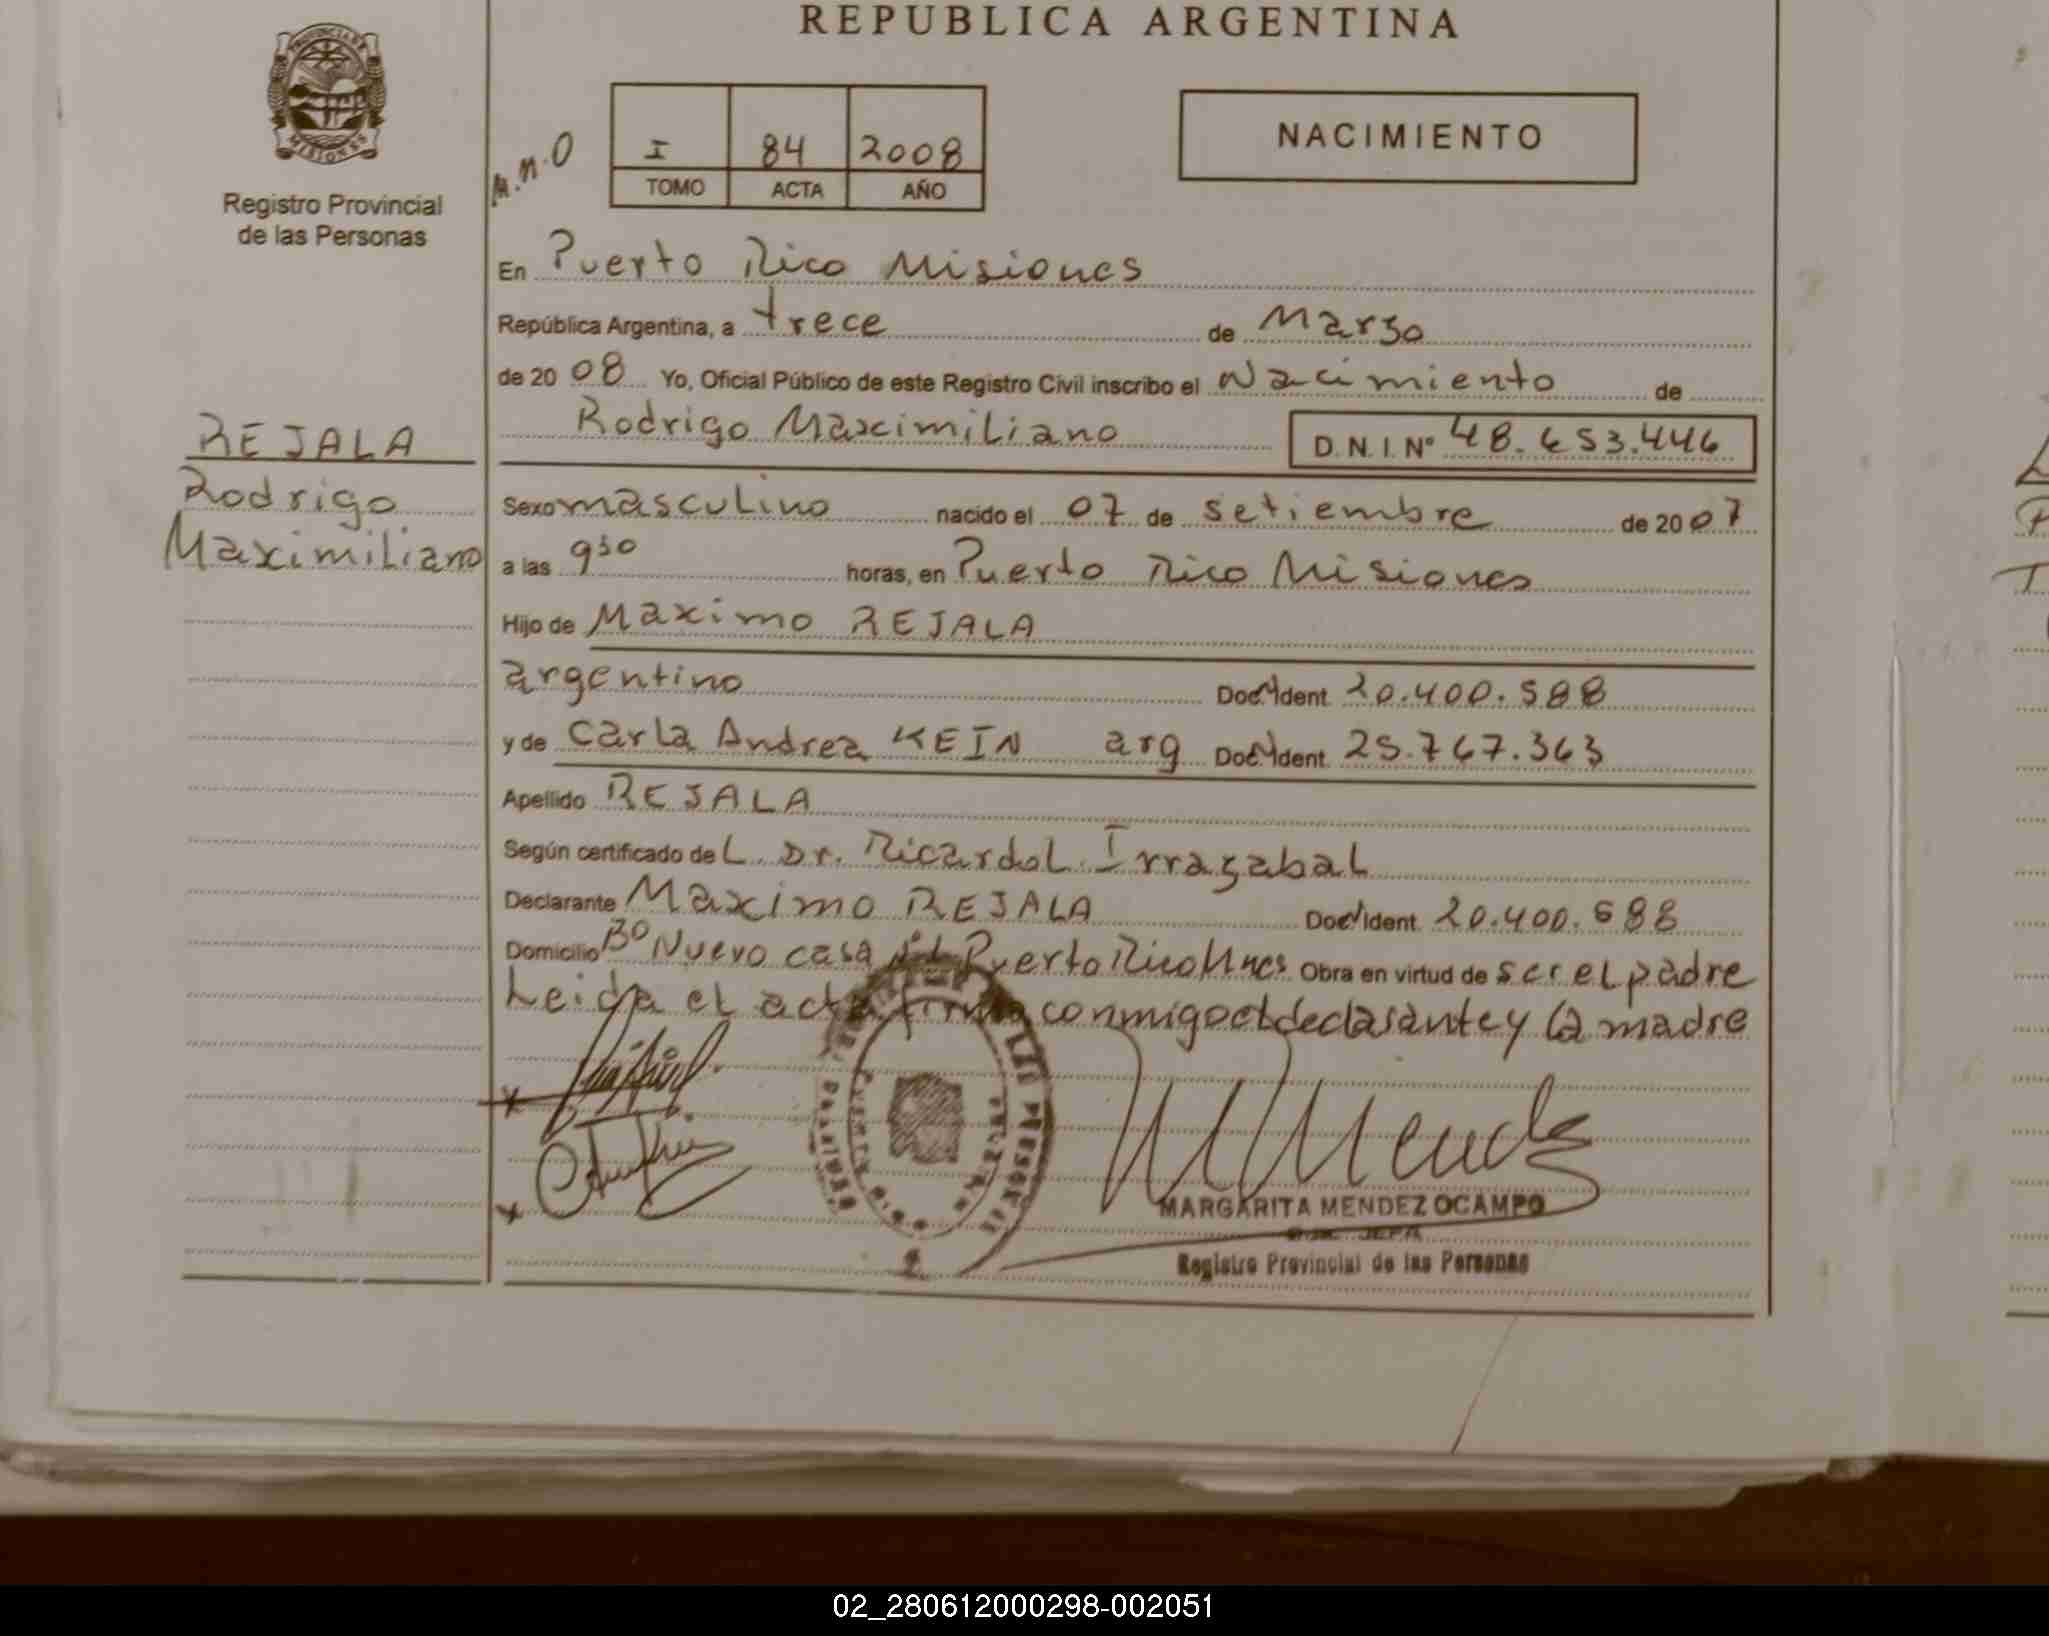 REPUBLICA ARGENTINA
PROVINCIA DE
MISIONES
Registro Provincial
de las Personas
M.N.O
I 84 2008
TOMO ACTA AÑO
NACIMIENTO
En Puerto Rico Misiones
República Argentina, a trece de Marzo
de 2008 Yo, Oficial Público de este Registro Civil inscribo el Nacimiento de
Rodrigo Maximiliano D.N.I.Nº 48.653.446
REJALA
Rodrigo
Maximiliano
Sexo masculino nacido el 07 de setiembre de 2007
a las 930 horas, en Puerto Rico Misiones
Hijo de Maximo REJALA
argentino Doc. Ident. 20.400.588
y de Carla Andrea KEIN arg Doc. Ident. 25.767.363
Apellido REJALA
Según certificado del Dr. Ricardo L. Irrazabal
Declarante Maximo REJALA Doc. Ident. 20.400.588
Domicilio Bº Nuevo casa Puerto Rico Mnes Obra en virtud de ser el padre
Leida el acta firma conmigo el declarante y la madre
MARGARITA MENDEZ OCAMPO
JEFA
Registro Provincial de las Personas
02_280612000298-002051